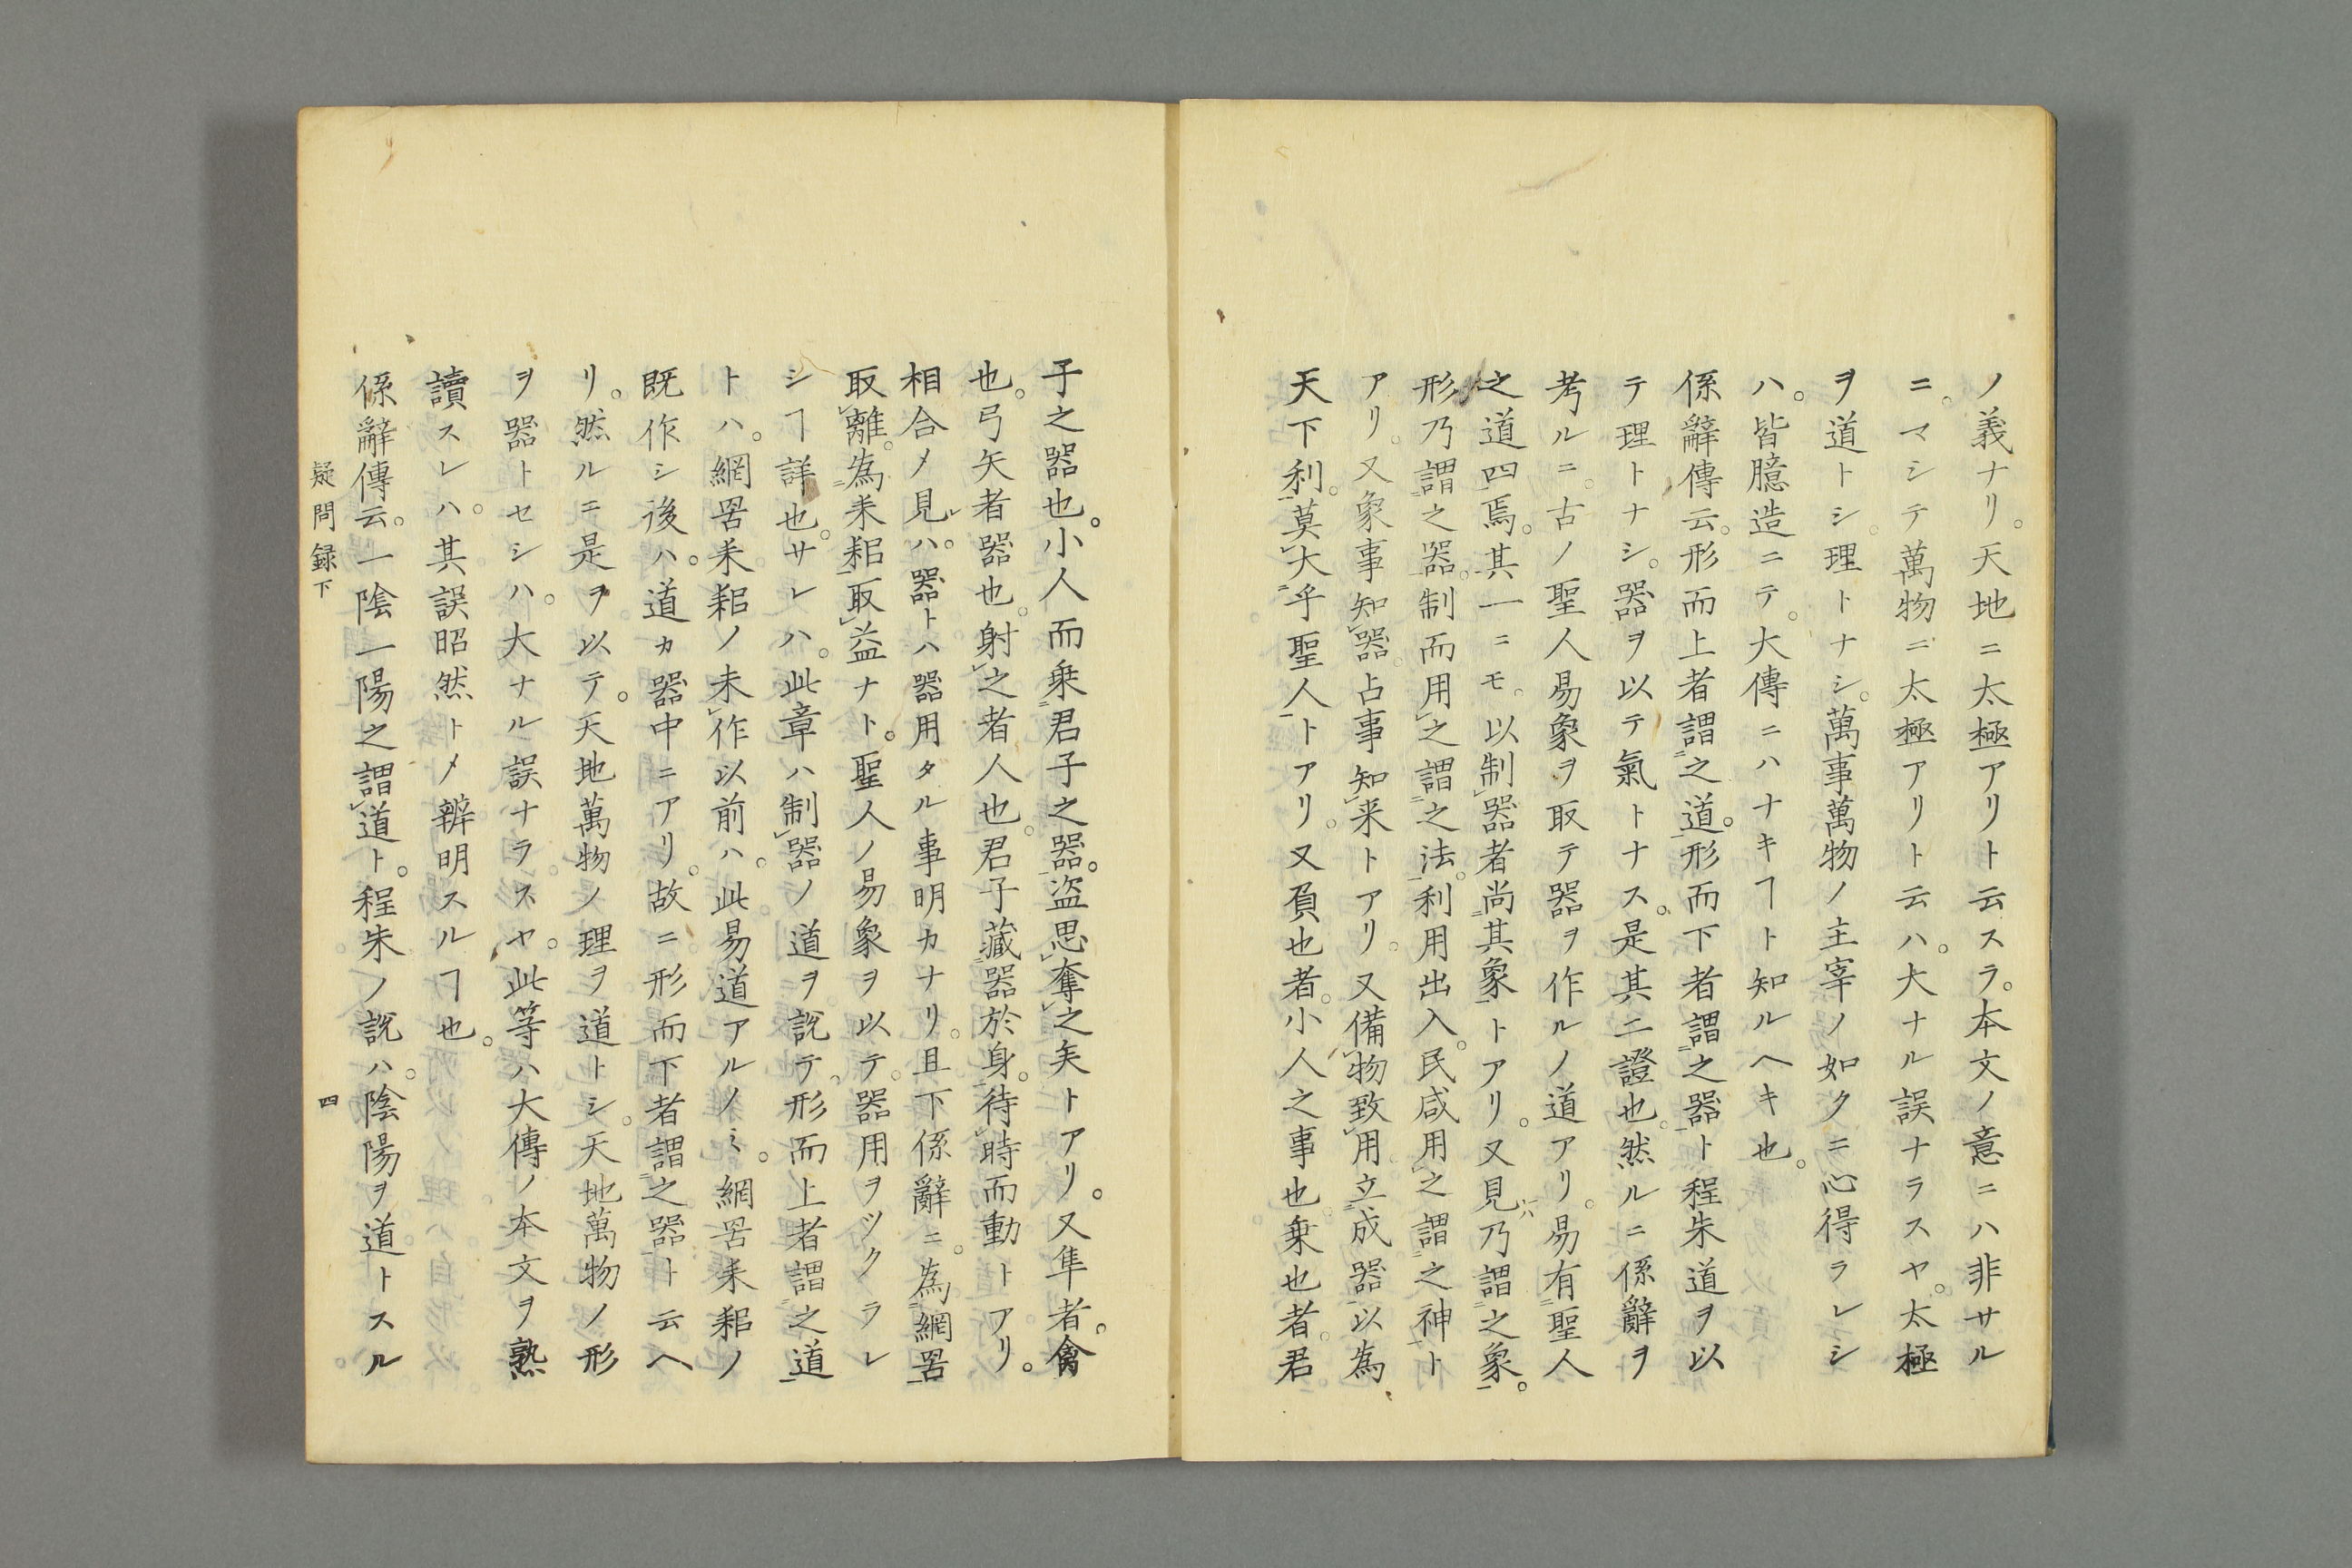 ノ義ナリ。天地ニ太極アリト云スラ。本文ノ意ニハ非サル
ニ。マシテ萬物ニ太極アリト云ハ。大ナル誤ナラスヤ。太極
ヲ道トシ。理トナシ。萬事萬物ノ主宰ノ如クニ心得ラレシ
ハ。皆臆造ニテ。大傳ニハナキヿト知ルヘキ也。
係辭傳云。形而上者謂之道。形而下者謂之器ト程朱道ヲ以
テ理トナシ。器ヲ以テ氣トナス。是其二證也。然ルニ係辭ヲ
考ルニ。古ノ聖人易象ヲ取テ器ヲ作ルノ道アリ。易有聖人
之道四焉。其一ニモ。以制器者尚其象トアリ。又見乃謂之象。
形乃謂之器。制而用之謂之法。利用出入。民咸用之謂之神ト
アリ。又象事知器。占事知来トアリ。又備物致用。立成器以為
天下利。莫大乎聖人トアリ。又負也者。小人之事也。乗也者。君
子之器也。小人而乗君子之器。盗思奪之矣トアリ。又隼者。禽
也。弓矢者器也。射之者人也。君子藏器於身。待時而動トアリ。
相合メ見ハ。器トハ器用タル事明カナリ。且下係辭ニ。為網罟
取離。為耒耜取益ナト。聖人ノ易象ヲ以テ。器用ヲツクラレ
シヿ詳也。サレハ。此章ハ制器ノ道ヲ説テ。形而上者謂之道
トハ。網罟耒耜ノ未作以前ハ。此易道アルノミ。網罟耒耜ノ
既作シ後ハ。道カ器中ニアリ。故ニ形而下者謂之器ト云ヘ
リ。然ルニ是ヲ以テ。天地萬物ノ理ヲ道トシ。天地萬物ノ形
ヲ器トセシハ。大ナル誤ナラスヤ。此等ハ大傳ノ本文ヲ熟
讀スレハ。其誤昭然トメ辨明スルヿ也。
係辭傳云。一陰一陽之謂道ト。程朱ノ説ハ。陰陽ヲ道トスル
疑問録下 四